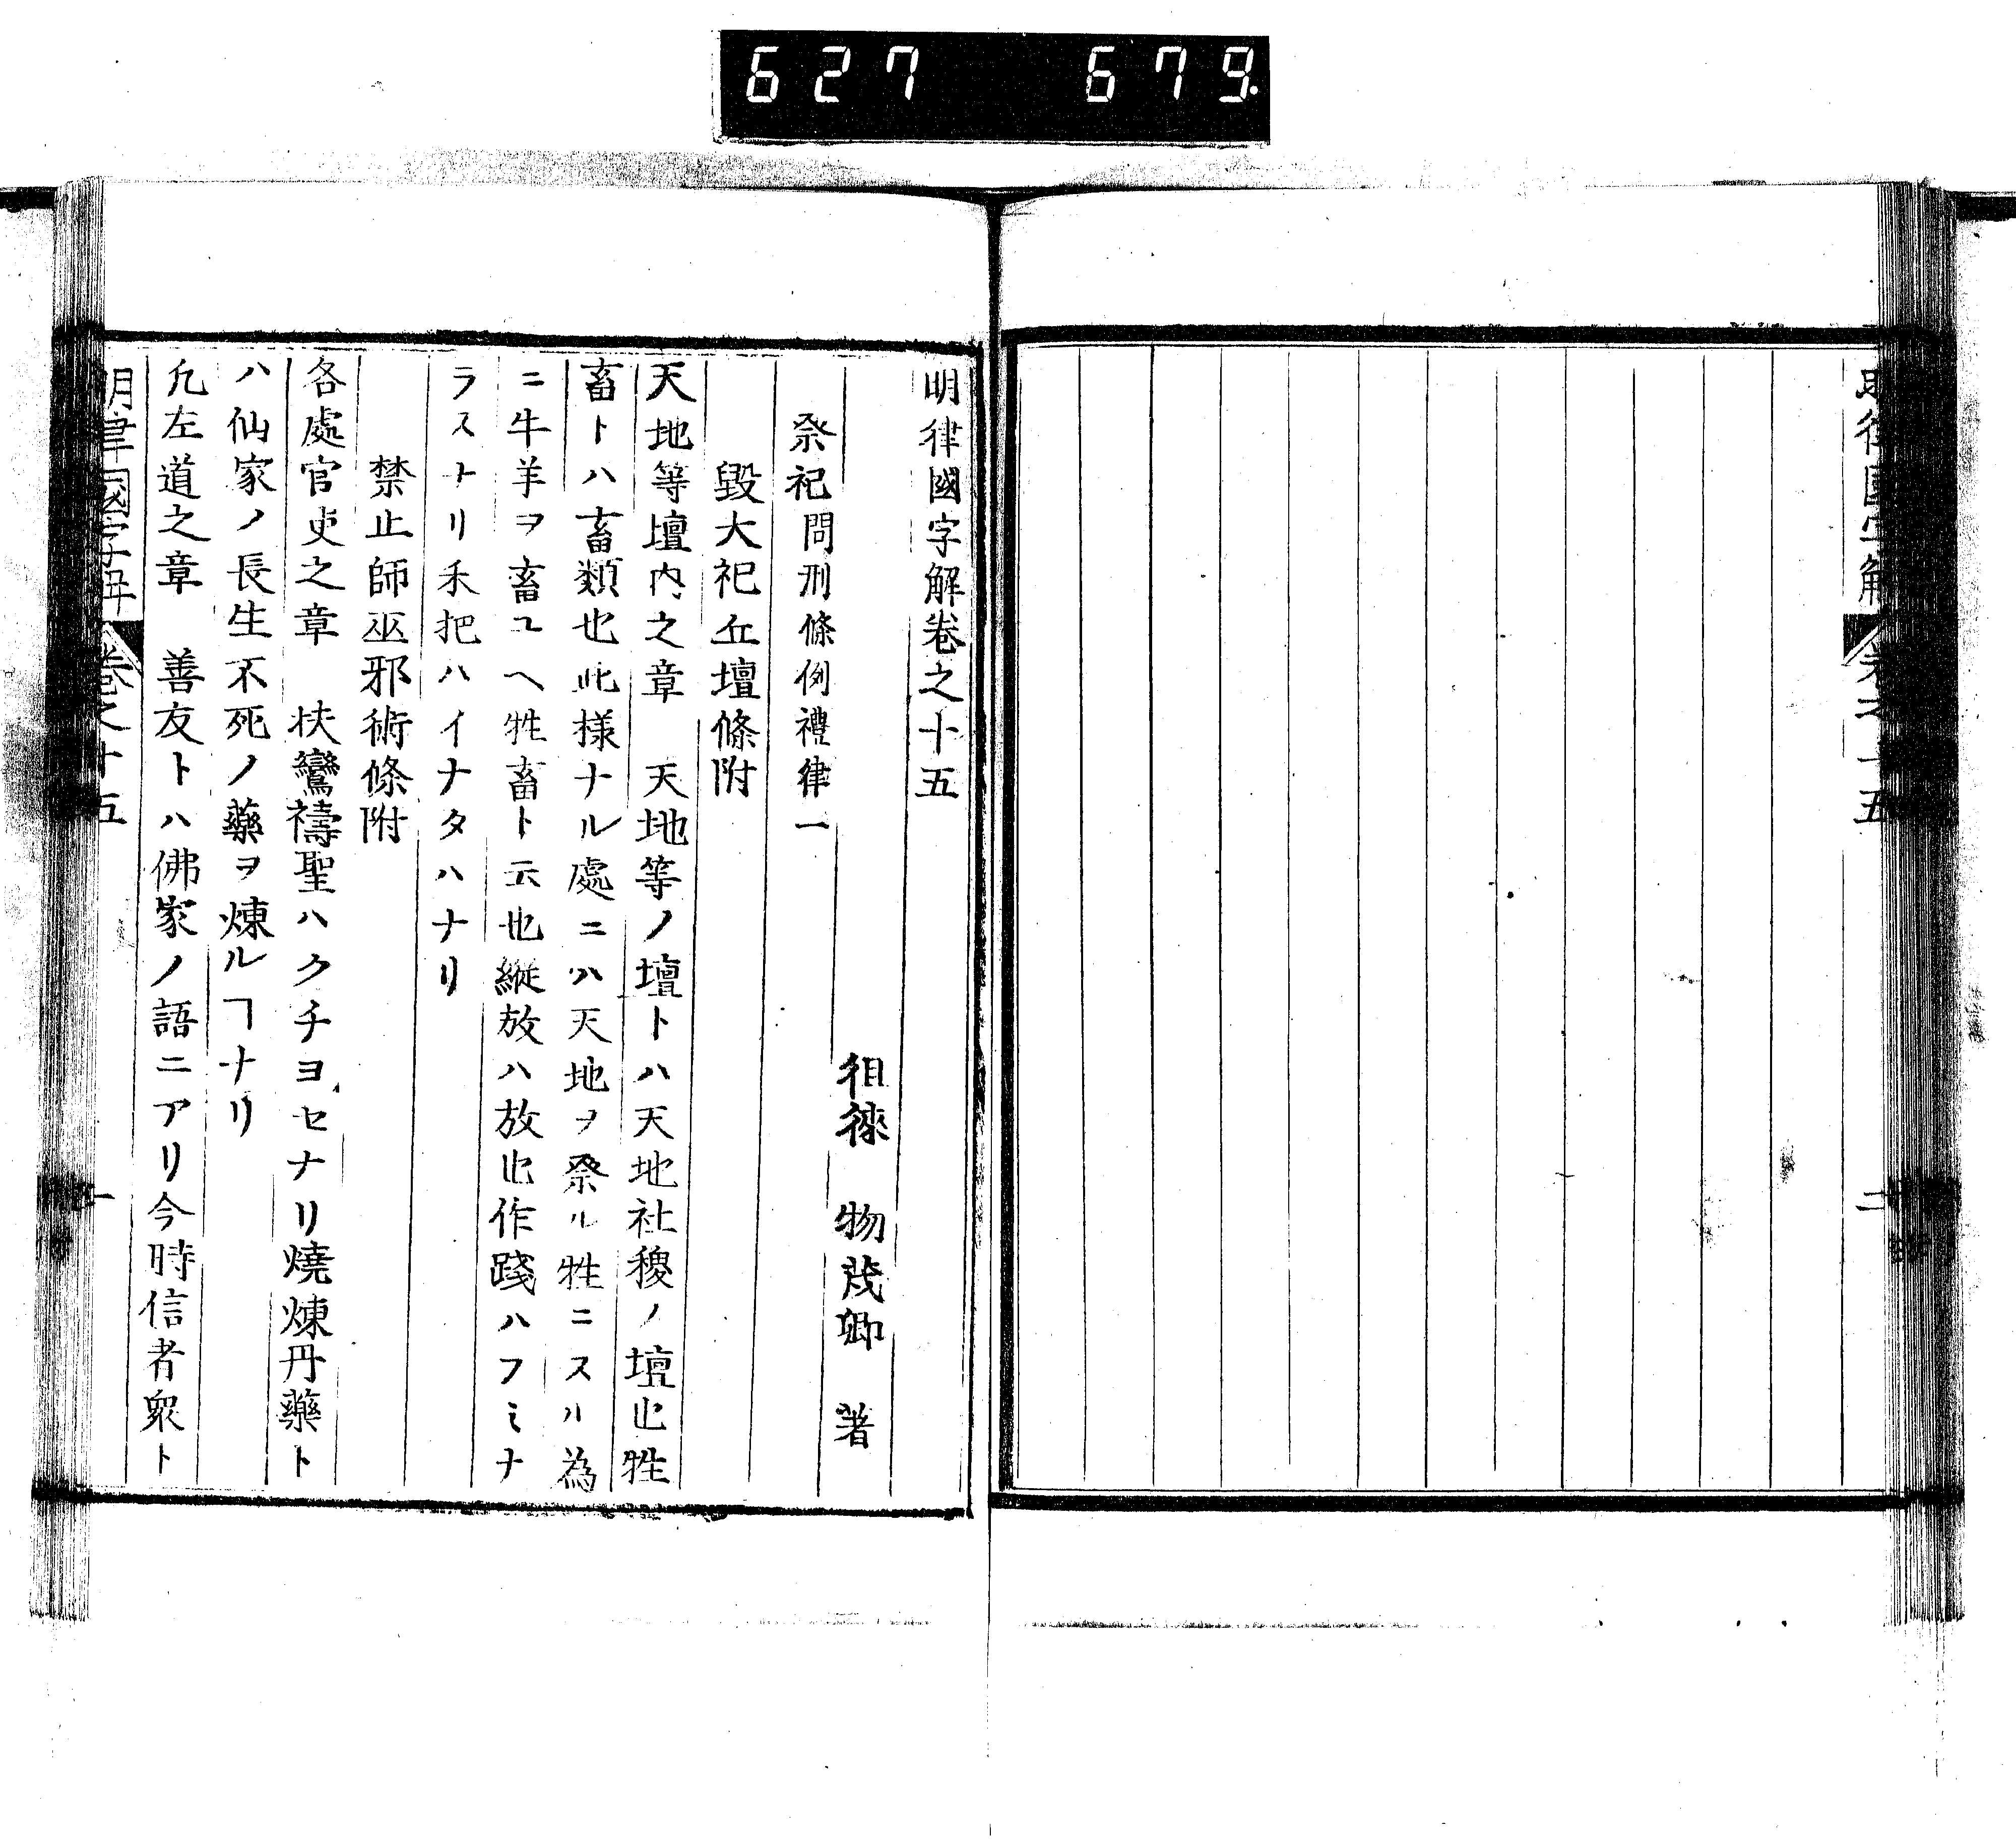 627 679.
明律國字解
卷之十五
二
明律國字解卷之十五
徂徠 物茂卿 著
祭祀問刑條例禮律一
毀大祀丘壇條附
天地等壇内之章 天地等ノ壇トハ天地社稷ノ壇也牲
畜トハ畜類也此様ナル處ニハ天地ヲ祭ル牲ニスル為
ニ牛羊ヲ畜ユヘ牲畜ト云也縱放ハ放也作踐ハフミナ
ラストリ禾把ハイナタハナリ
禁止師巫邪術條附
各處官吏之章 扶鸞禱聖ハクチヨセナリ燒煉丹藥ト
ハ仙家ノ長生不死ノ藥ヲ煉ルヿナリ
凢左道之章 善友トハ佛家ノ語ニアリ今時信者衆ト
明律國字解
卷之十五
一